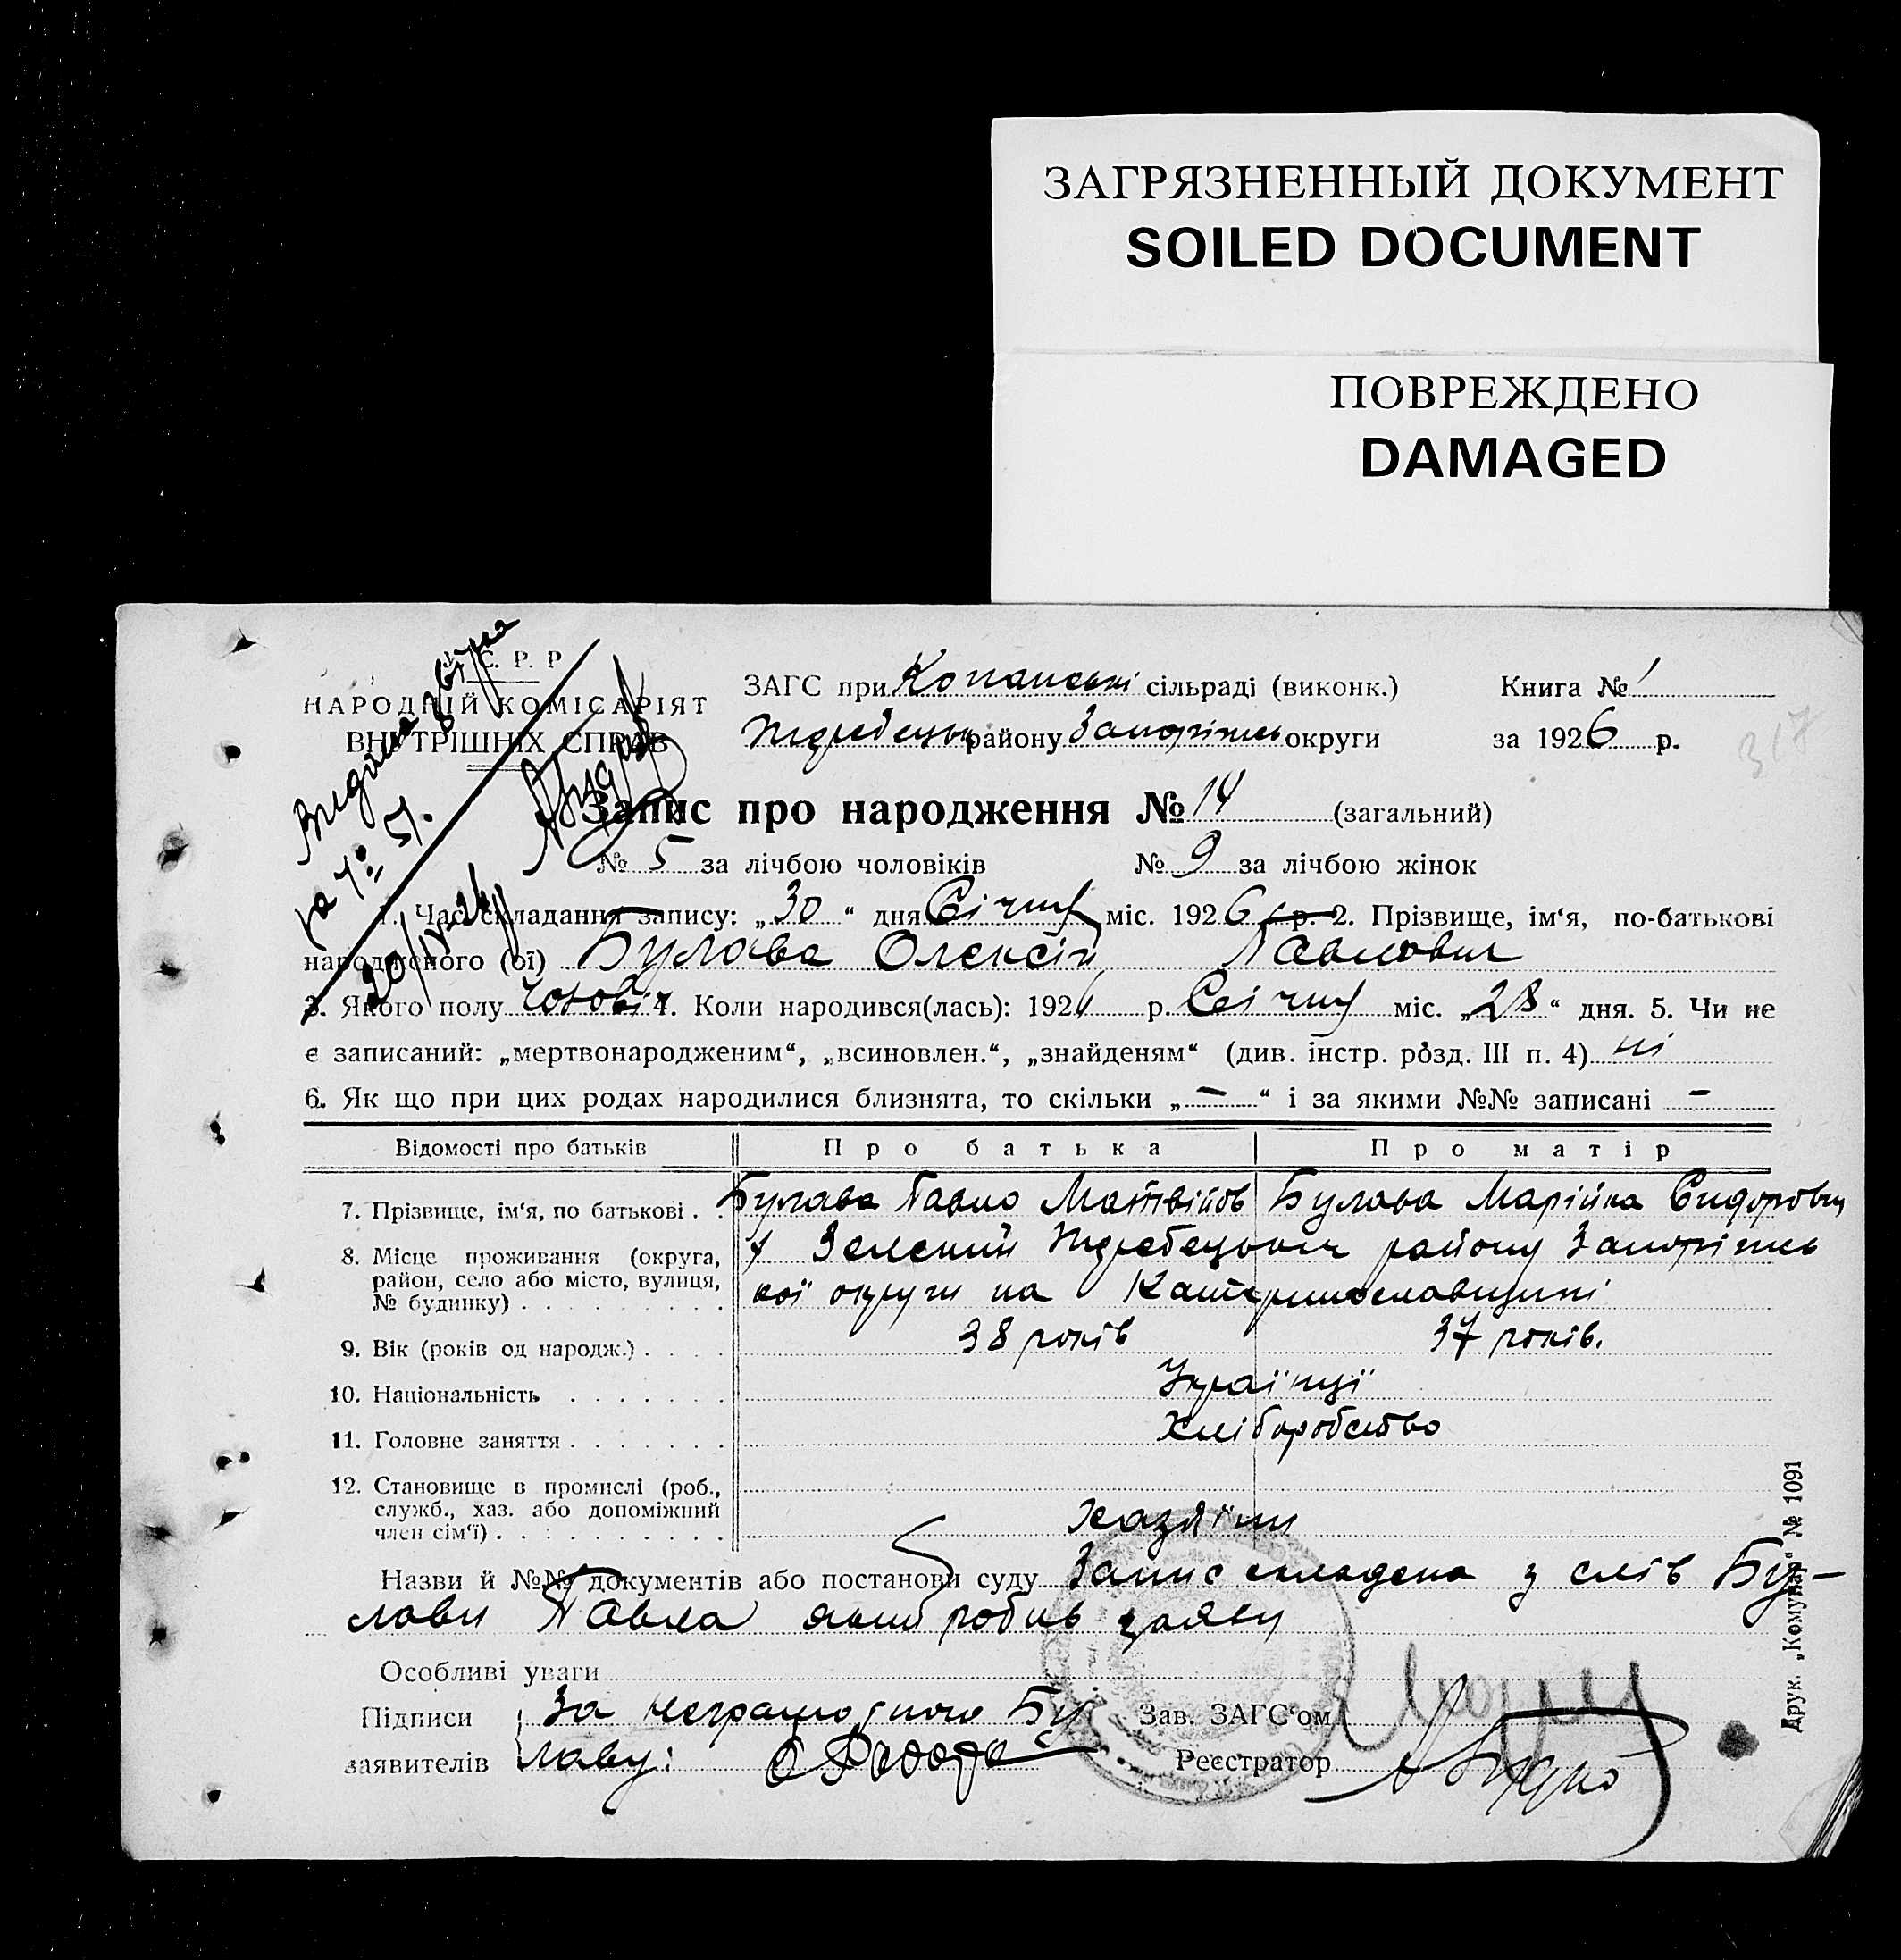 ЗАГРЯЗНЕННЫЙ ДОКУМЕНТ
SOILED DOCUMENT
ПОВРЕЖДЕНО
DAMAGED
С. Р. Р
НАРОДНІЙ КОМІСАРІЯТ
ВНУТРІШНІХ СПРАВ
Видана
за № 51.
20/IV-26
ЗАГС при Копанські сільраді (виконк.)
Книга № 1
Жеребецьк району Запоріжськ округи
за 1926 р.
317
Запис про народження № 14 (загальний)
№ 5 за лічбою чоловіків № 9 за лічбою жінок
1. Час складання запису: „30“ дня Січня міс. 1926 р. 2. Прізвище, ім‘я, по-батькові
народженого (ої) Булава Олексій Павлович
3. Якого полу чоловіч 4. Коли народився(лась): 1926 р. Січня міс. „28“ дня. 5. Чи не
є записаний: „мертвонародженим“, „всиновлен.“, „знайденям“ (див. інстр. розд. III п. 4) ні
6. Як що при цих родах народилися близнята, то скільки „—“ і за якими №№ записані —
Відомості про батьків
Про батька
Про матір
7. Прізвище, ім‘я, по батькові . . Булава Павло Матвійов Булава Марійка Сидоровн
8. Місце проживання (округа, район, село або місто, вулиця, № будинку)
х Зелений Жеребецького району Запоріжсь
кої округи на Катеринославщині
9. Вік (років од народж.) . . . . 38 років 37 років.
10. Національність . . . . . . Українці
11. Головне заняття . . . . . . . Хліборобство
12. Становище в промислі (роб.,
служб., хаз. або допоміжний
член сім‘ї) . . . . . . . . . . Хазяїни
Назви й №№ документів або постанови суду Запис складено з слів Бу-
лави Павла який робив заяву
Особливі уваги
Підписи За неграмотного Бу-
заявителів лаву:
Зав. ЗАГС‘ом
Реєстратор
Друк. „Комунар“ № 1091